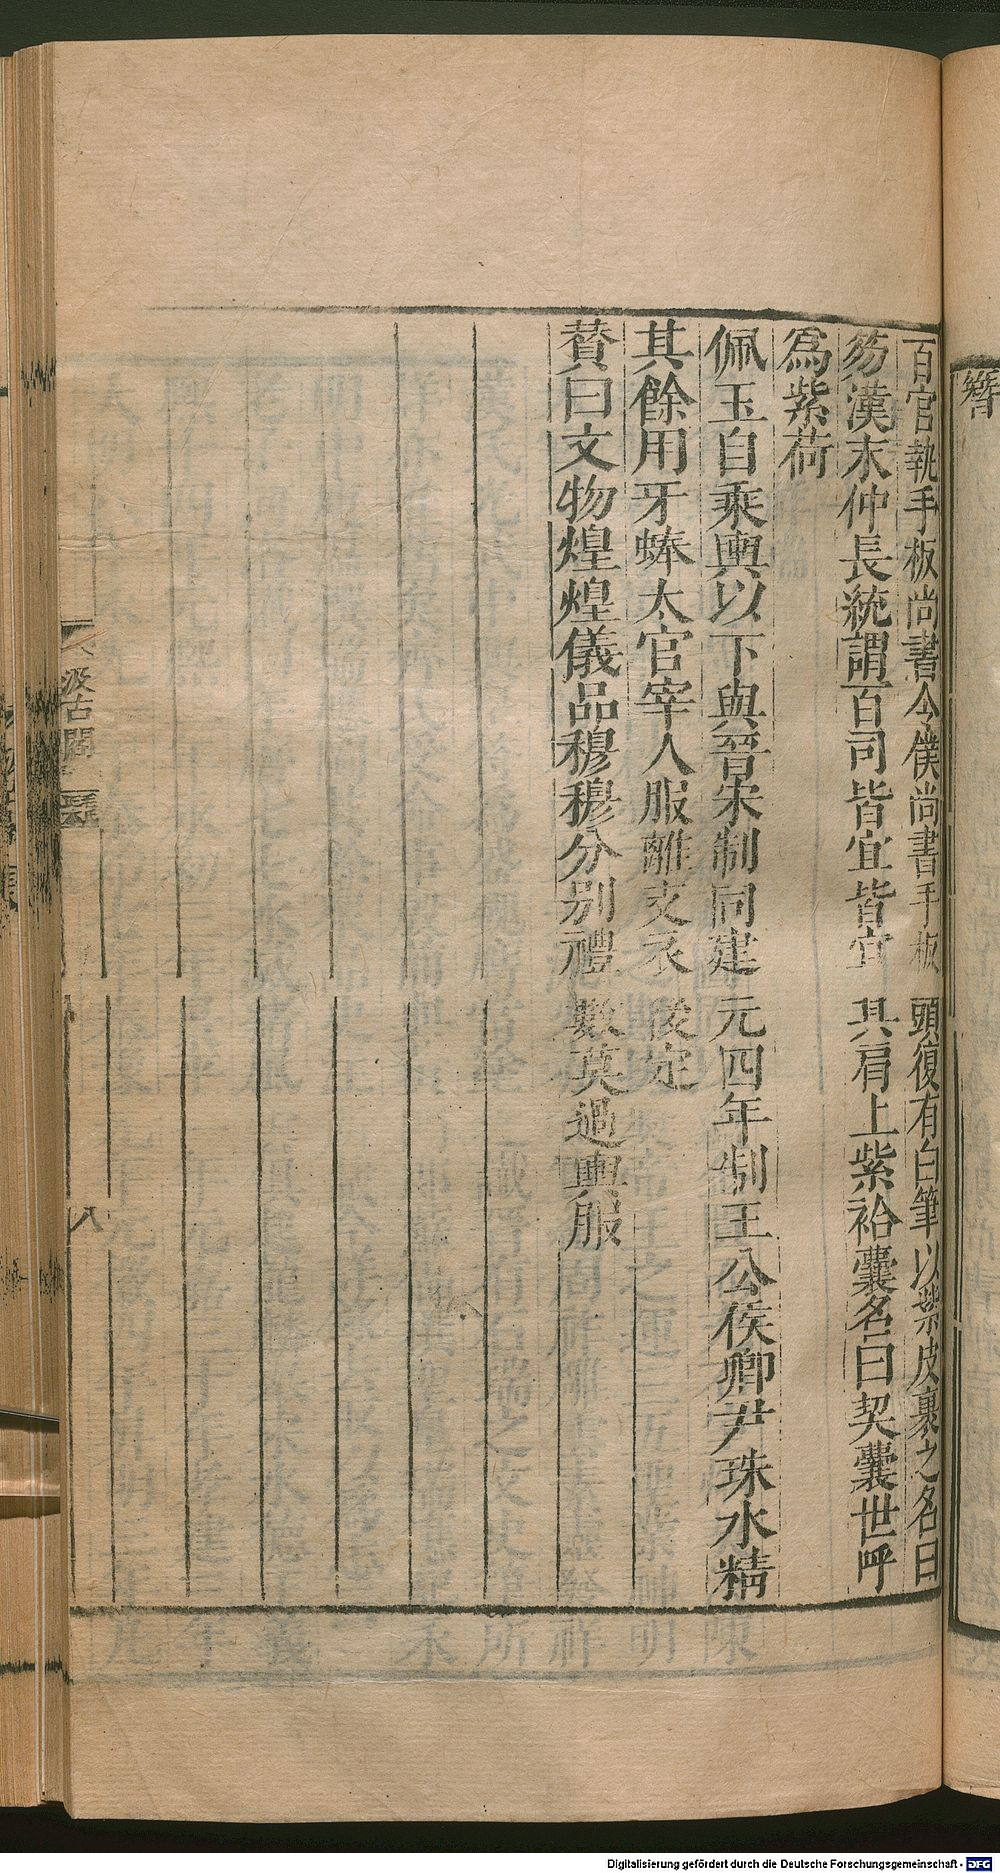 百官執手板尚書令僕尚書手板頭復有白筆以紫皮裹之名曰
笏漢末仲長統謂百司皆宜皆宜其肩上紫袷囊名曰契囊世呼
爲紫荷
佩玉自乘輿以下與晉宋制同建元四年制王公侯卿尹珠水精
其餘用牙蜯太官宰人服離支衣後定
贊曰文物煌煌儀品穆穆分別禮數莫過輿服
汲古閣
八
簪
Digitalisierung gefördert durch die Deutsche Forschungsgemeinschaft - DFG